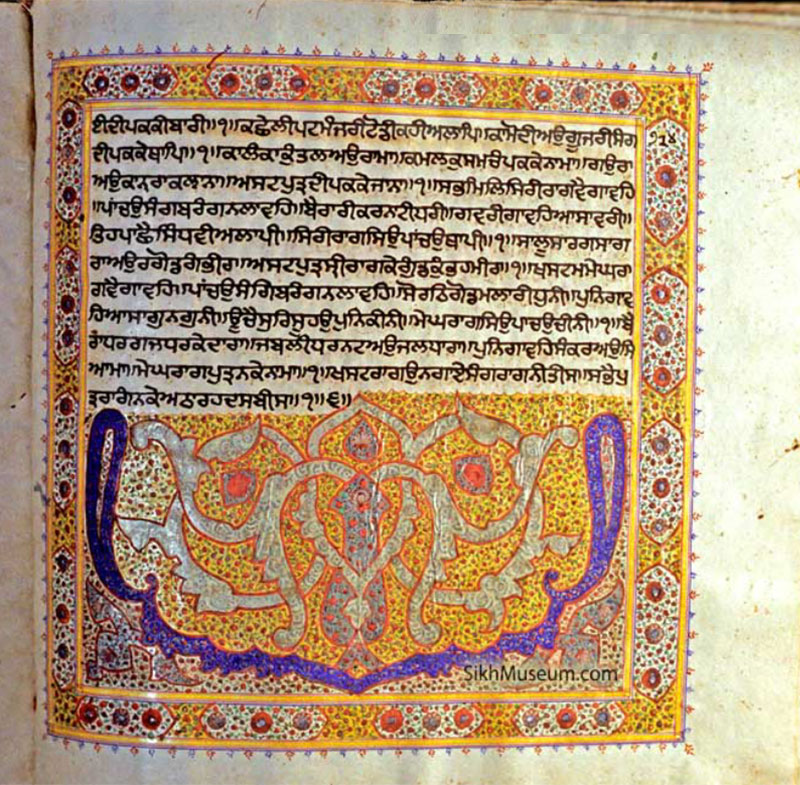 ਈਦੀਪਕਕੀਬਾਰੀ॥੧॥ਕਛੇਲੀਪਟਮੰਜਰੀਟੋਡੀਕਹੀਅਲਾਪਿ॥ਕਾਮੋਦੀਅਉਗੂਜਰੀਸੰਗਿ
ਦੀਪਕਕੇਥਾਪਿ॥੧॥ਕਾਲੰਕਾਕੁੰਤਲਅਉਰਾਮਾ॥ਕਮਲਕੁਸਮਚੰਪਕਕੇਨਾਮਾ॥ਗਉਰਾ
ਅਉਕਾਨਰਾਕਲਾਨਾ॥ਅਸਟਪੁਤ੍ਰਦੀਪਕਕੇਜਾਨਾ॥੧॥ਸਭਮਿਲਿਸਿਰੀਰਾਗਵੈਗਾਵਹਿ
॥ਪਾਂਚਉਸੰਗਬਰੰਗਨਲਾਵਹਿ॥ਬੈਰਾਰੀਕਰਨਟੀਧਰੀ॥ਗਵਰੀਗਾਵਹਿਆਸਾਵਰੀ॥
ਤਿਹਪਾਛੈਸਿੰਧਵੀਅਲਾਪੀ॥ਸਿਰੀਰਾਗਸਿਉਪਾਂਚਉਥਾਪੀ॥੧॥ਸਾਲੂਸਾਰਗਸਾਗ
ਰਾਅਉਰਗੋਡਗੰਭੀਰ॥ਅਸਟਪੁਤ੍ਰਸ੍ਰੀਰਾਗਕੇਗੁੰਡਕੁੰਭਹਮੀਰ॥੧॥ਖਸਟਮਮੇਘਰਾ
ਗਵੈਗਾਵਹਿ॥ਪਾਂਚਉਸੰਗਿਬਰੰਗਨਲਾਵਹਿ॥ਸੋਰਠਿਗੋਡਮਲਾਰੀਧੁਨੀ॥ਪੁਨਿਗਾਵ
ਹਿਆਸਾਗੁਨਗੁਨੀ॥ਊਚੈਸੁਰਿਸੂਹਉਪੁਨਿਕੀਨੀ॥ਮੇਘਰਾਗਸਿਉਪਾਚਉਚੀਨੀ॥੧॥ਬੈ
ਰਾਧਰਗਜਧਰਕੇਦਾਰਾ॥ਜਬਲੀਧਰਨਟਅਉਜਲਧਾਰਾ॥ਪੁਨਿਗਾਵਹਿਸੰਕਰਅਉਸਿ
ਆਮਾ॥ਮੇਘਰਾਗਪੁਤ੍ਰਨਕੇਨਾਮਾ॥੧॥ਖਸਟਰਾਗਉਨਗਾਏਸੰਗਿਰਾਗਨੀਤੀਸ॥ਸਭੈਪੁ
ਤ੍ਰਰਾਗੰਨਕੇਅਠਾਰਹਦਸਬੀਸ॥੧॥੬॥
SikhMuseum.com